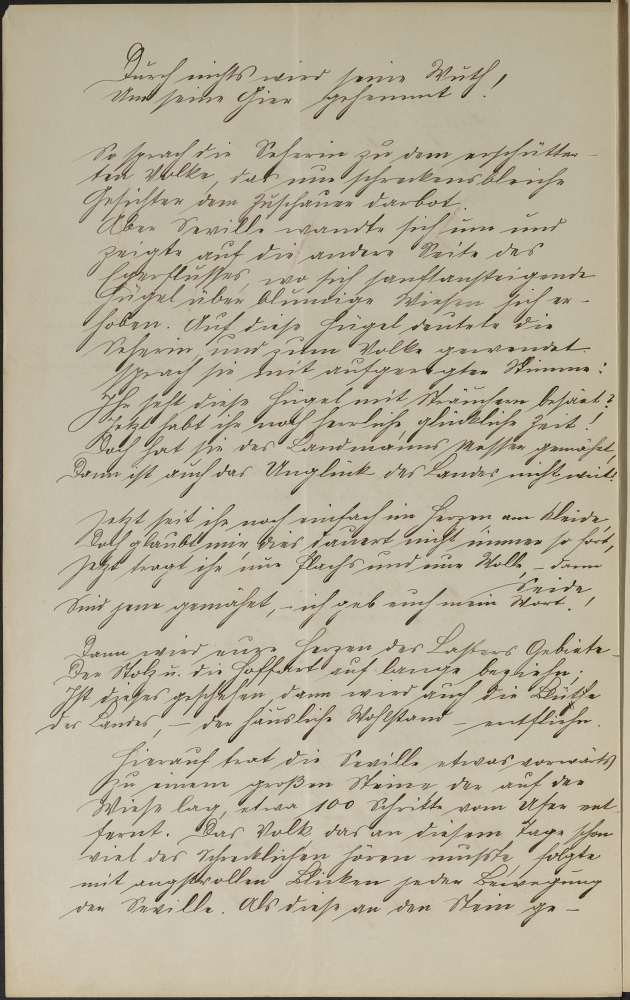 Durch nichts wird seine Wuth,
Und seine Gier gehemmt!
So sprach die Seherin zu dem erschütter-
ten Volke, das nun schreckensbleiche
Gesichter dem Zuschauer darbot.
Aber Seville wandte sich um und
zeigte auf die andere Seite des
Egerflusses, wo sich sanftansteigende
Hügel über blumige Wiesen sich er-
hoben. Auf diese Hügel deutete die
Seherin, und zum Volke gewendet
sprach sie mit aufgeregter Stimme:
Ihr seht diese Hügel mit Sträuchern besäet?
Jetzt habt ihr noch herrliche, glückliche Zeit!
Doch hat sie des Landmanns Messer gemähet,
Dann ist auch das Unglück des Landes nicht weit!
Jetzt seit ihr noch einfach im Herzen am Kleide,
Doch glaubt mir, dies dauert nicht immer so fort,
Jetzt tragt ihr nur Flachs und nur Wolle, – dann
Seide
Sind jene gemähet, – ich geb euch mein Wort!
Dann wird eure Herzen des Lasters Gebiete
Der Stolz u. die Hoffart auf lange beziehn;
Ist dieses geschehen dann wird auch die Blüthe
des Landes, – der häusliche Wohlstand – entfliehn.
Hierauf trat die Seville etwas vorwärts
zu einem großen Steine der auf der
Wiese lag, etwa 100 Schritte vom Ufer ent-
fernt. Das Volk, das an diesem Tage schon
viel des Schrecklichen hören mußte, folgte
mit angstvollen Blicken jeder Bewegung
der Seville. Als diese an den Stein ge-